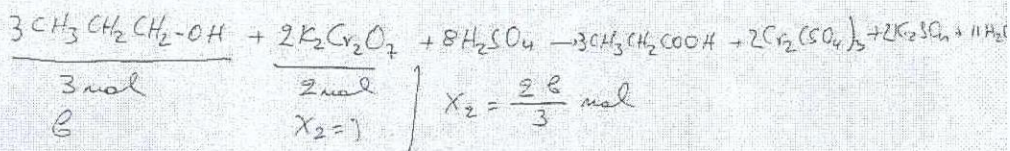 3CH₃CH₂CH₂-OH + 2K₂Cr₂O₇ + 8H₂SO₄ → 3CH₃CH₂COOH + 2Cr₂(SO₄)₃ + 2K₂SO₄ + 11H₂O
3 mol 2 mol X₂ = 2b/3 mol
b X₂ = ?